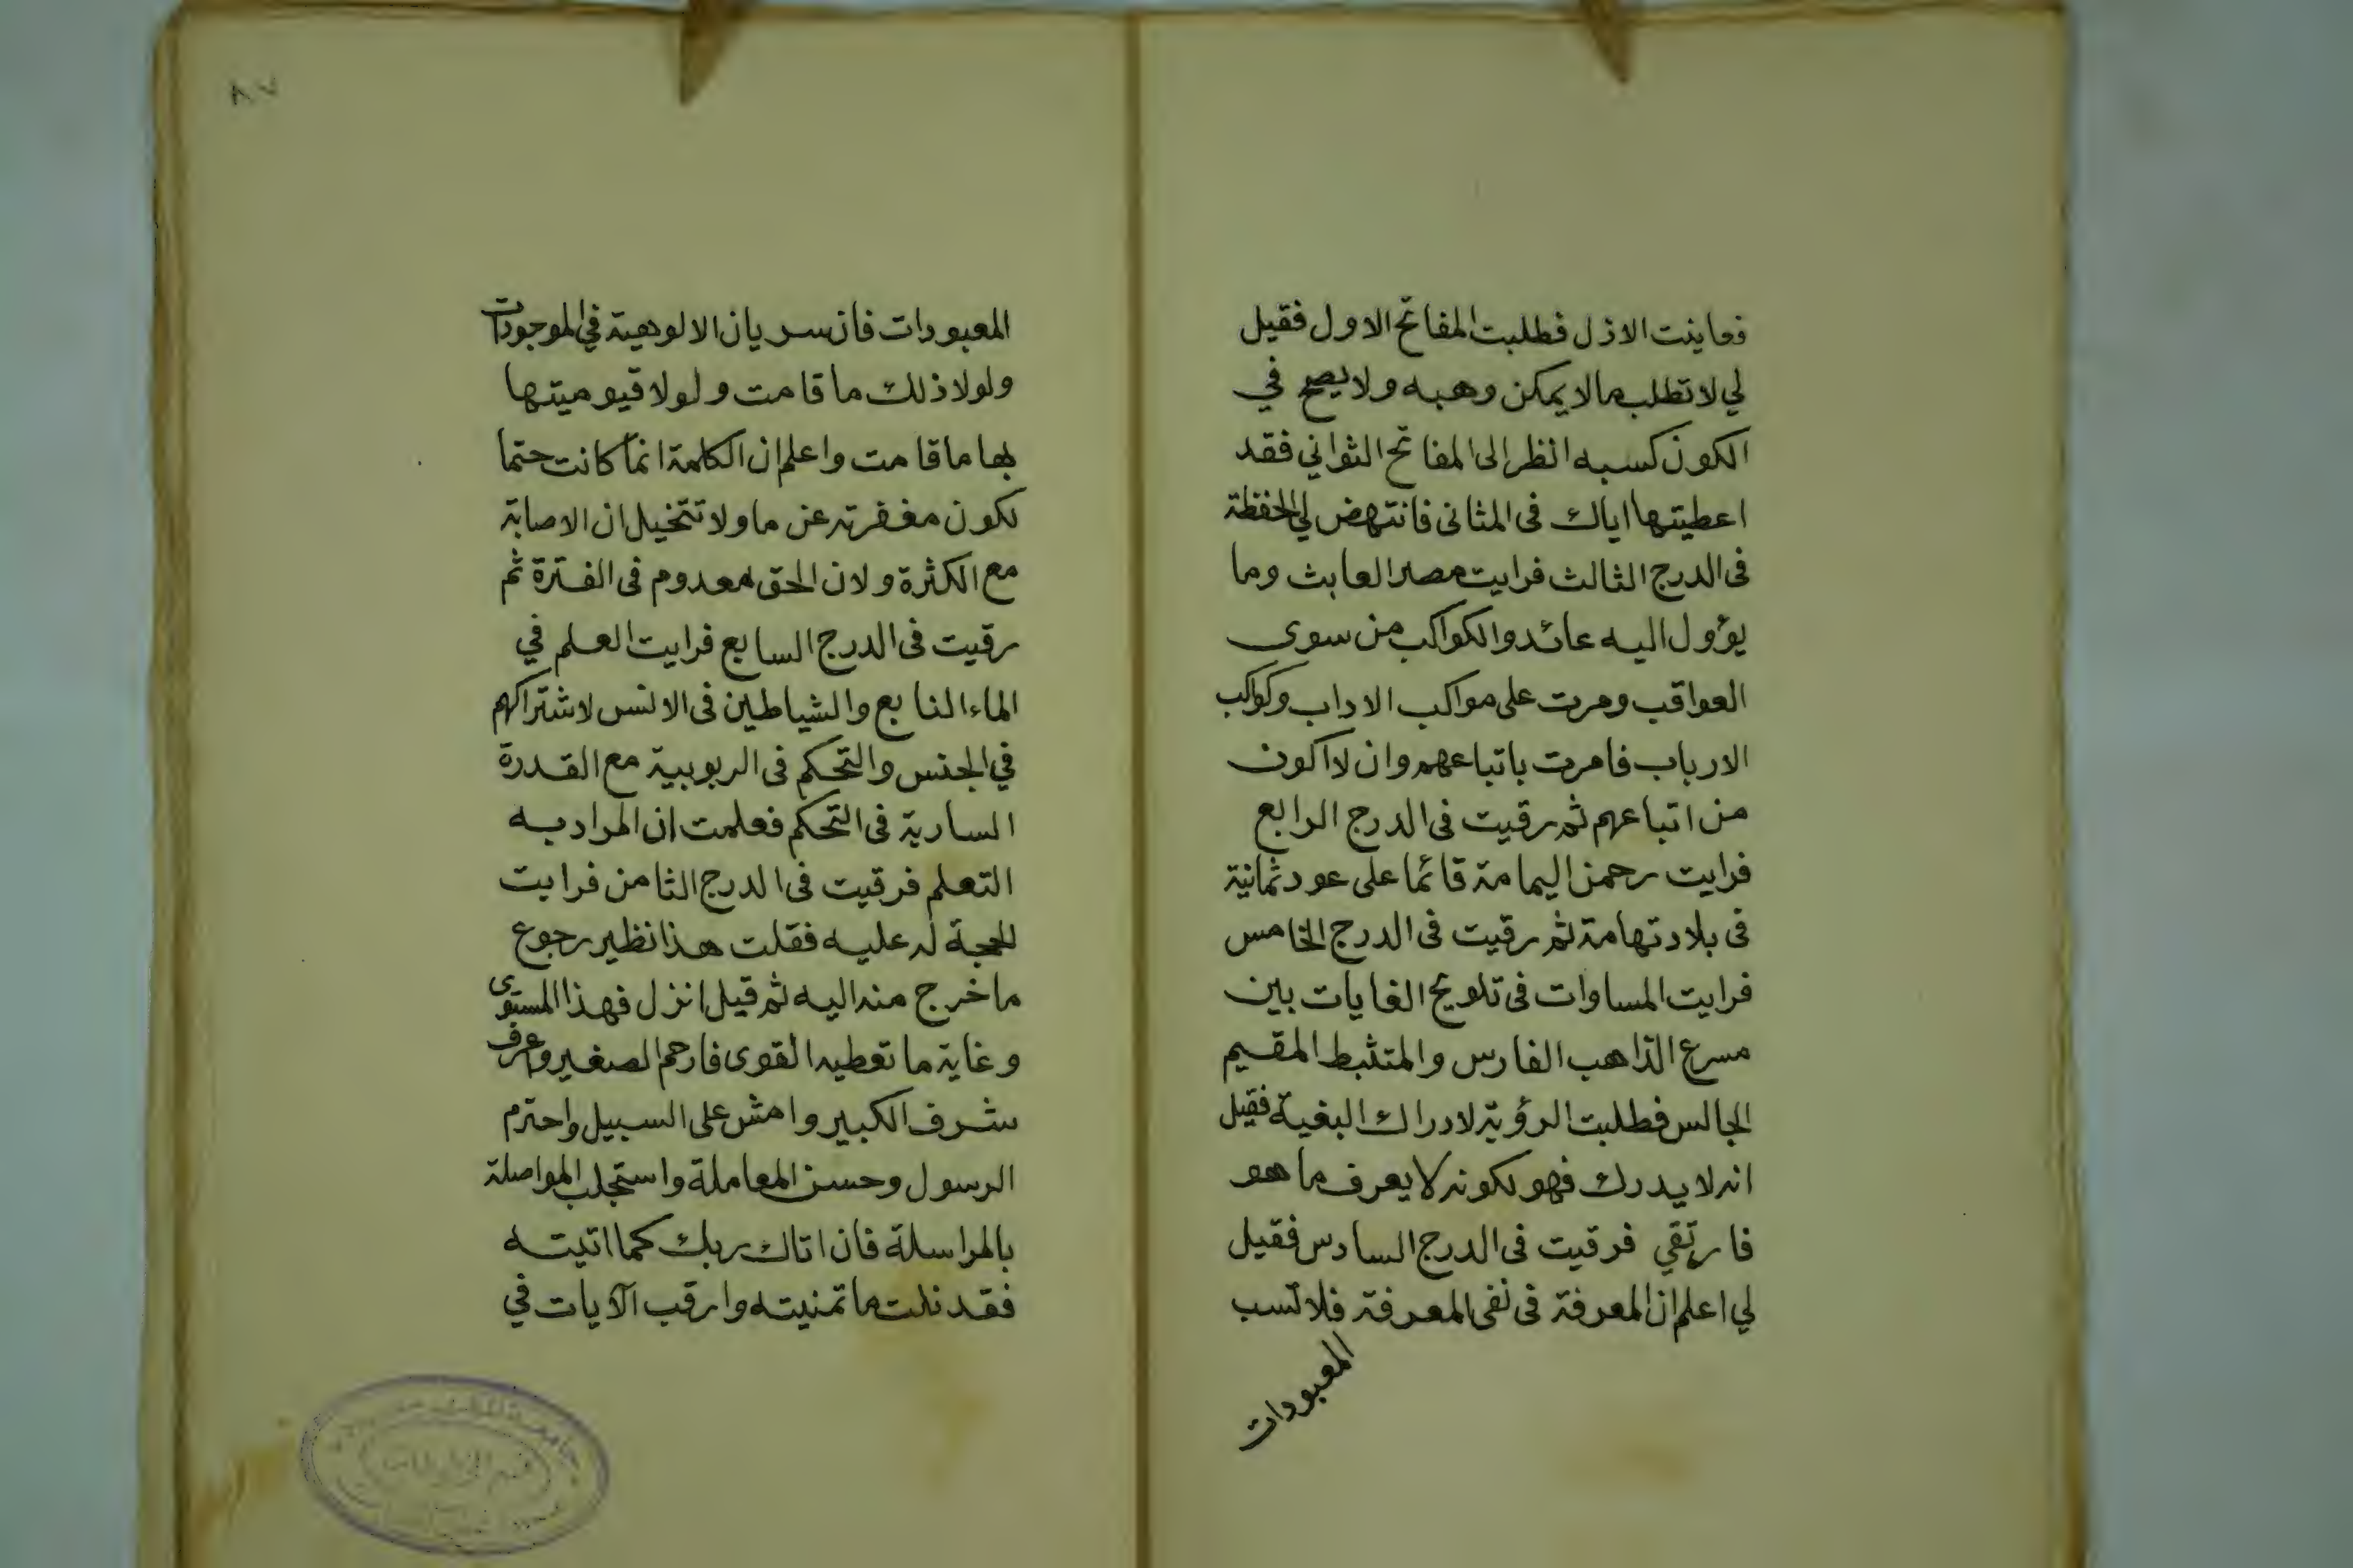 فعاينت الازل فطلبت المفاتح الاول فقيل
لي لا تطلب مالا يمكن وهبه ولا يصح في
الكون كسبه انظر الى المفاتح الثواني فقد
اعطيتها اياك فى المثانى فانتهض لي الحفظة
فى الدرج الثالث فرايت مصر العابث وما
يؤول اليه عائد والكواكب من سوى
العواقب ومرت على مواكب الاداب وكواكب
الارباب فامرت باتباعهم وان لا اكون
من اتباعهم ثم رقيت فى الدرج الرابع
فرايت رحمن اليمامة قائما على عود ثمانية
فى بلاد تهامة ثم رقيت فى الدرج الخامس
فرايت المساوات فى تلويح الغايات بين
مسرع الذاهب الفارس والمتثبط المقيم
الجالس فطلبت الرؤية لادراك البغية فقيل
انه لا يدرك فهو لكونه لا يعرف ما هو
فارتقي فرقيت فى الدرج السادس فقيل
لي اعلم ان المعرفة فى نفى المعرفة فلا تسب
المعبودات
٨٧
المعبودات فان سريان الالوهية في الموجودات
ولولا ذلك ما قامت ولولا قيوميتها
بها ما قامت واعلم ان الكلمة انما كانت حتما
لكون مغفرته عن ما ولا تتخيل ان الاصابة
مع الكثرة ولا ن الحق معدوم فى الفترة ثم
رقيت فى الدرج السابع فرايت العلم في
الماء النابع والشياطين فى الانس لاشتراكهم
في الجنس والتحكم فى الربوبية مع القدرة
السارية فى التحكم فعلمت ان المراد به
التعلم فرقيت فى الدرج الثامن فرايت
للحجة له عليه فقلت هذا نظير رجوع
ما خرج منه اليه ثم قيل انزل فهذا المستوى
وغاية ما تعطيه القوى فارحم الصغير واعرف
شرف الكبير وامش على السبيل واحترم
الرسول وحسن المعاملة واستجلب المواصلة
بالمراسلة فان اتاك ربك كما اتيته
فقد نلت ما تمنيته وارقب الآيات في